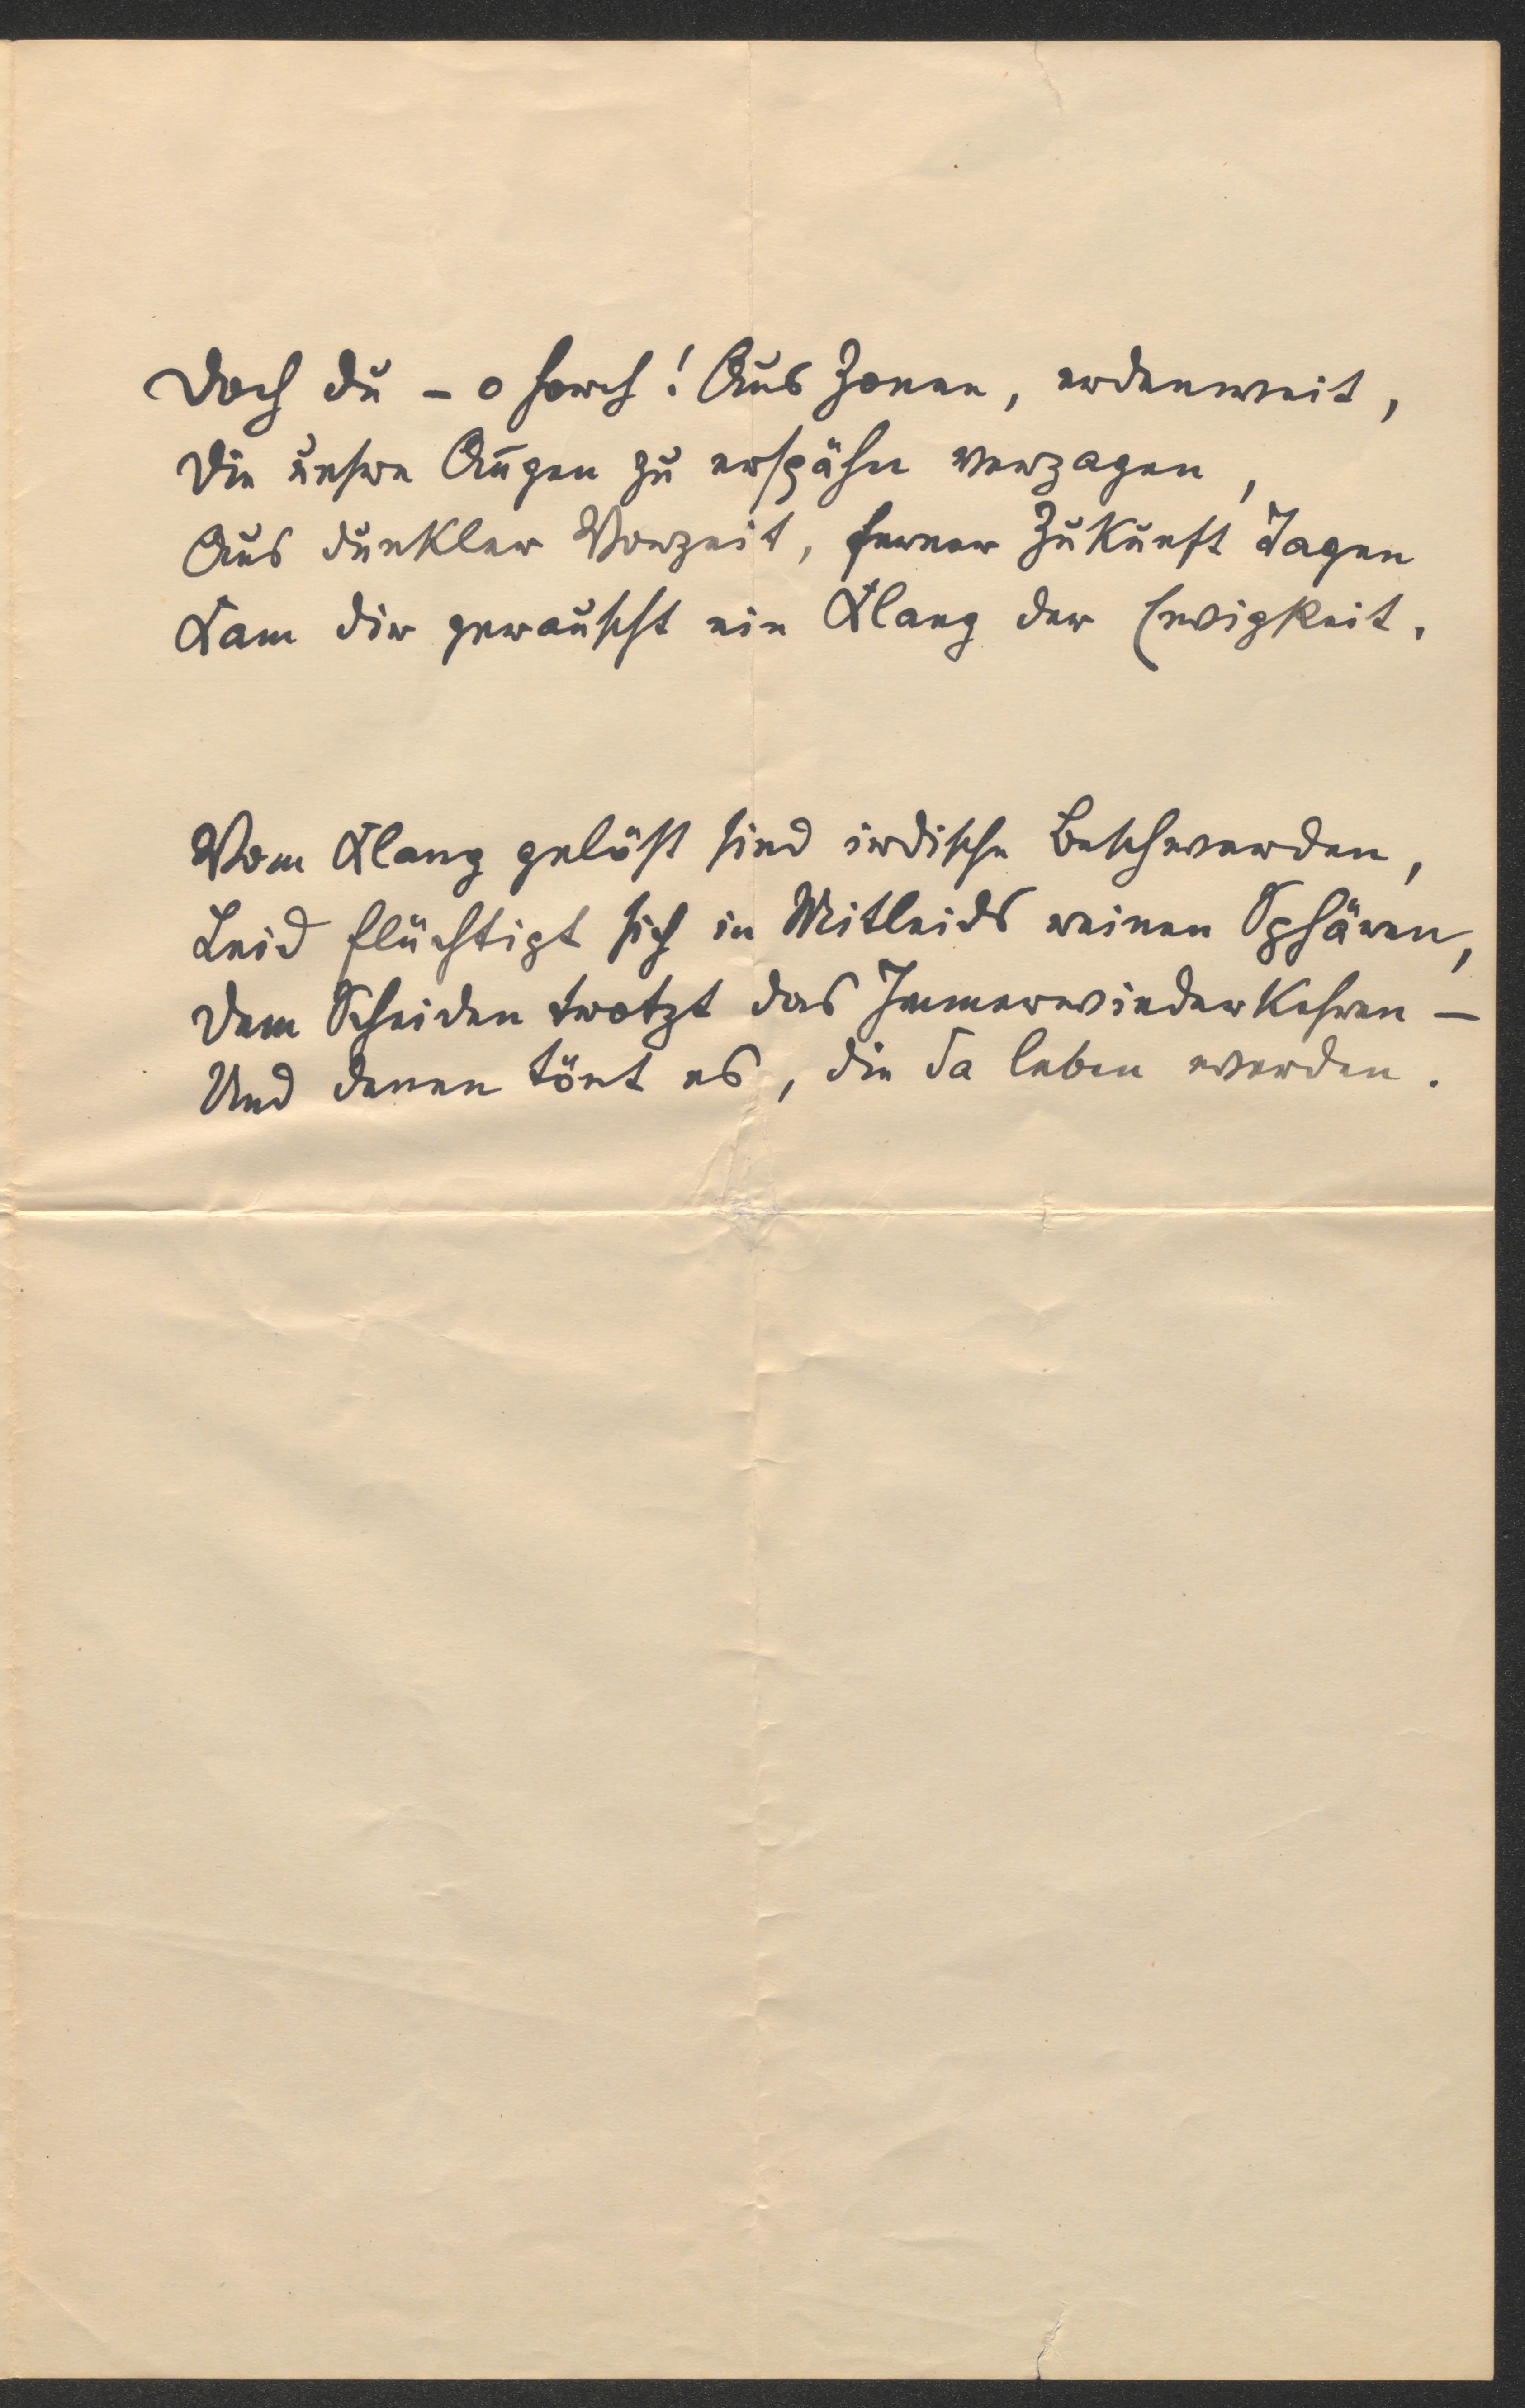 Doch du – o horch! Aus Zonen, erdenweit,
Die unsre Augen zu erspähn verzagen,
Aus dunkler Vorzeit, ferner Zukunft Tagen
Kam dir gerauscht ein Klang der Ewigkeit.
Vom Klang gelöst sind irdische Beschwerden,
Leid flüchtigt sich in Mitleids reinen Sphären,
Dem Scheiden trotzt das Immerwiederkehren –
Und denen tönt es, die da leben werden.